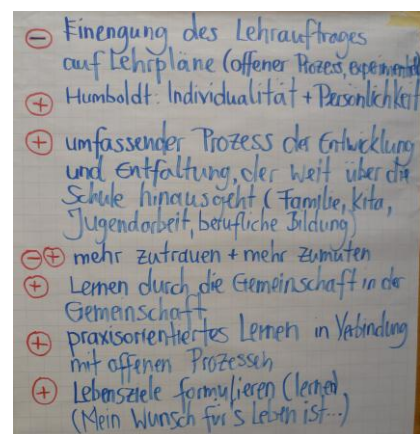 ⊖ Einengung des Lehrauftrages
auf Lehrpläne (offener Prozess, experimentell
⊕ Humboldt: Individualität + Persönlichkeit
⊕ umfassender Prozess der Entwicklung
und Entfaltung, der weit über die
Schule hinausgeht (Familie, Kita,
Jugendarbeit, berufliche Bildung)
⊖⊕ mehr zutrauen + mehr zumuten
⊕ Lernen durch die Gemeinschaft in der
Gemeinschaft
⊕ praxisorientiertes Lernen in Verbindung
mit offenen Prozessen
⊕ Lebensziele formulieren (lernen)
(Mein Wunsch für's Leben ist...)